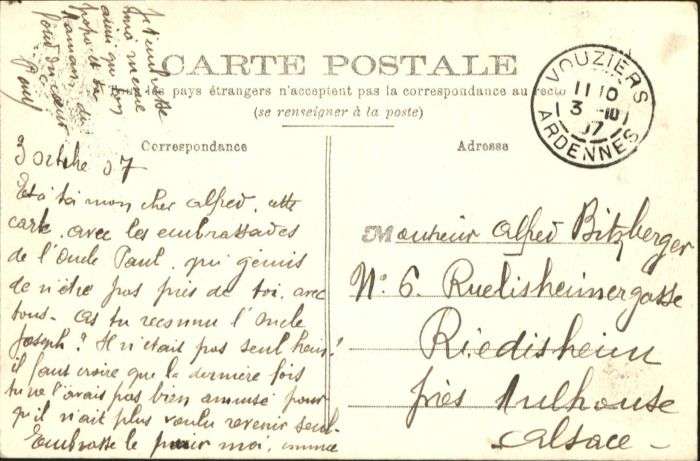 Je t'embrasse
ainsi que ton
papa et ta
maman du
fond du cœur
Paul
CARTE POSTALE
Tous les pays étrangers n'acceptent pas la correspondance au recto
(se renseigner à la poste)
VOUZIERS
11 10
3 -10
07
ARDENNES
Correspondance
3 octobre 07
Et à toi mon cher alfred, cette
carte, avec les embrassades
de l'Oncle Paul, qui gémis
de n'être pas près de toi, avec
tous. As tu reconnu l'oncle
Joseph? Il n'était pas seul hein!
il faut croire que la dernière fois
tu ne l'avais pas bien amusé pour
qu'il n'ait plus voulu revenir seul.
Embrasse le pour moi, comme
Adresse
Monsieur Alfred Bitzberger
No. 6. Ruelisheimergasse
Riedisheim
près Mulhouse
Alsace